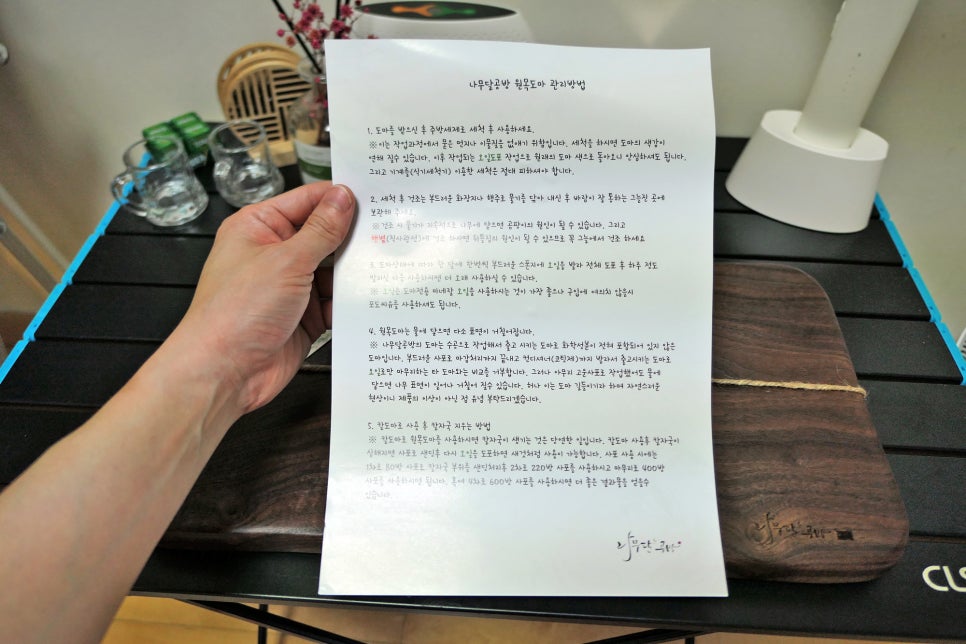 나무달공방 원목도마 관리방법
1. 도마를 받으신 후 주방세제로 세척 후 사용하세요.
※ 이는 작업과정에서 묻은 먼지나 이물질을 없애기 위함입니다. 세척을 하시면 도마의 색감이
연해 질수 있습니다. 이후 작업되는 오일도포 작업으로 원래의 도마 색으로 돌아오니 안심하셔도 됩니다.
그리고 기계틀(식기세척기) 이용한 세척은 절대 피하셔야 합니다.
2. 세척 후 건조는 부드러운 화장지나 행주로 물기를 닦아 내신 후 바람이 잘 통하는 그늘진 곳에
보관해 주세요.
※ 건조 시 물기가 지속적으로 나무에 닿으면 곰팡이의 원인이 될 수 있습니다. 그리고
햇빛(직사광선)에 건조 하시면 뒤틀림의 원인이 될 수 있으므로 꼭 그늘에서 건조 하세요
3. 도마상태에 따라 한 달에 한번씩 부드러운 스폰지에 오일을 발라 전체 도포 후 하루 정도
말리신 뒤 사용하시면 더 오래 사용하실 수 있습니다.
※ 오일은 도마전용 미네랄 오일을 사용하시는 것이 가장 좋으나 구입에 여의치 않은시
포도씨유를 사용하셔도 됩니다.
4. 원목도마는 물에 닿으면 다소 표면이 거칠어집니다.
※ 나무달공방의 도마는 수공으로 작업해서 출고 시키는 도마로 화학성분이 전혀 포함되어 있지 않은
도마입니다. 부드러운 사포로 마감처리까지 끝내고 컨디셔너(코팅제)까지 발라서 출고시키는 도마로
오일로만 마무리하는 타 도마와는 비교를 거부합니다. 그러나 아무리 고운사포로 작업했어도 물에
닿으면 나무 표면이 일어나 거칠어 질수 있습니다. 허나 이는 도마 길들이기라 하며 자연스러운
현상이니 제품의 이상이 아닌 점 유념 부탁드리겠습니다.
5. 칼도마로 사용 후 칼자국 지우는 방법
※ 칼도마로 원목도마를 사용하시면 칼자국이 생기는 것은 당연한 일입니다. 칼도마 사용후 칼자국이
심해지면 사포로 샌딩후 다시 오일을 도포하면 새것처럼 사용이 가능합니다. 사포 사용 시에는
1차로 80방 사포로 칼자국 부위를 샌딩처리후 2차로 220방 사포를 사용하시고 마무리로 400방
사포를 사용하시면 됩니다. 혹여 4차로 600방 사포를 사용하시면 더 좋은 결과물을 얻을수
있습니다.
나무달공방
나무달공방
CLS